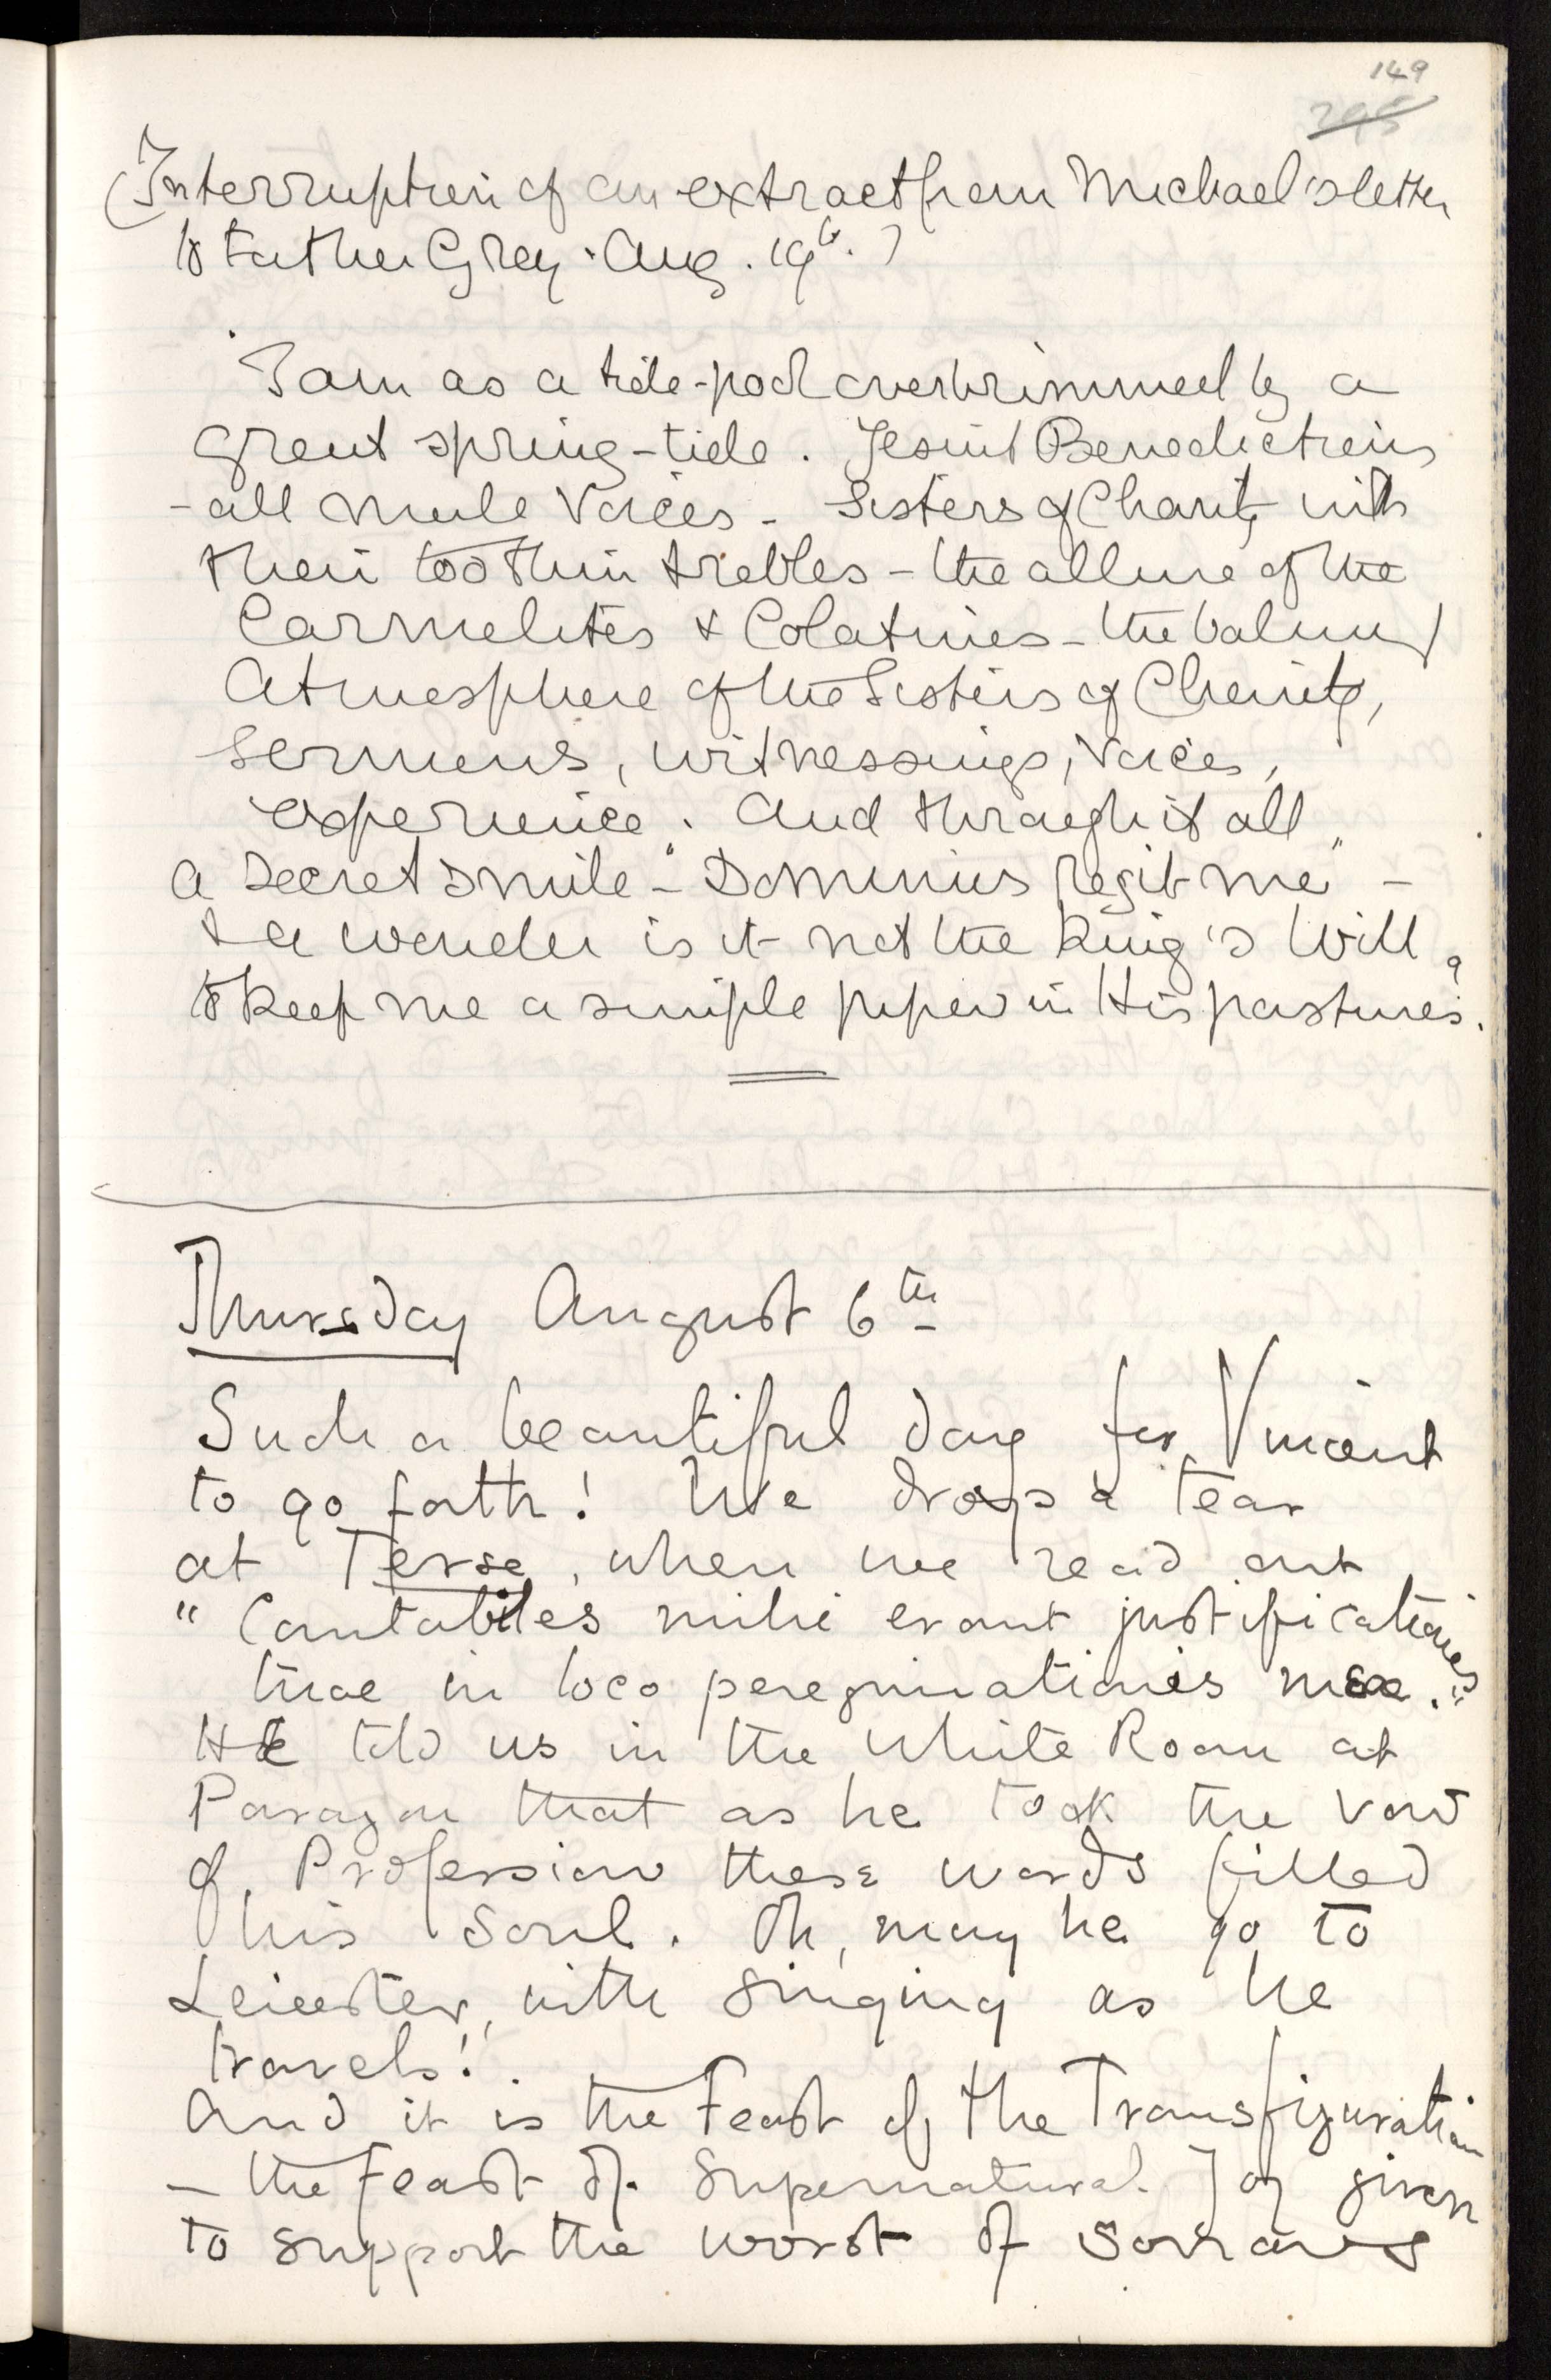 149
295
(Interruption of an extract from Michael's letter
to Father Grey. Aug. 19th.)
I am as a tide-pool overbrimmed by a
great spring-tide. Jesuit Benedictions
- all male voices - Sisters of Charity with
their too thin trebles - the allure of the
Carmelites & Colatines - the balmy
atmosphere of the Sisters of Charity,
Sermons, witnessings, voices,
experience. And through it all
a secret smile - "Dominus regit me" -
& a wonder is it not the King's Will
to keep me a simple piper in His pastures?
Thursday August 6th
Such a beautiful day for Vincent
to go forth! We drop a tear
at Terse, when we read out
"Cantabiles mihi erant justificationes
tuae in loco peregrinationis meae."
He told us in the White Room at
Paragon that as he took the vow
of Profession these words filled
his soul. Oh, may he go to
Leicester, with singing as he
travels!
And it is the Feast of the Transfiguration
- the Feast of Supernatural Joy given
to support the worst of sorrows